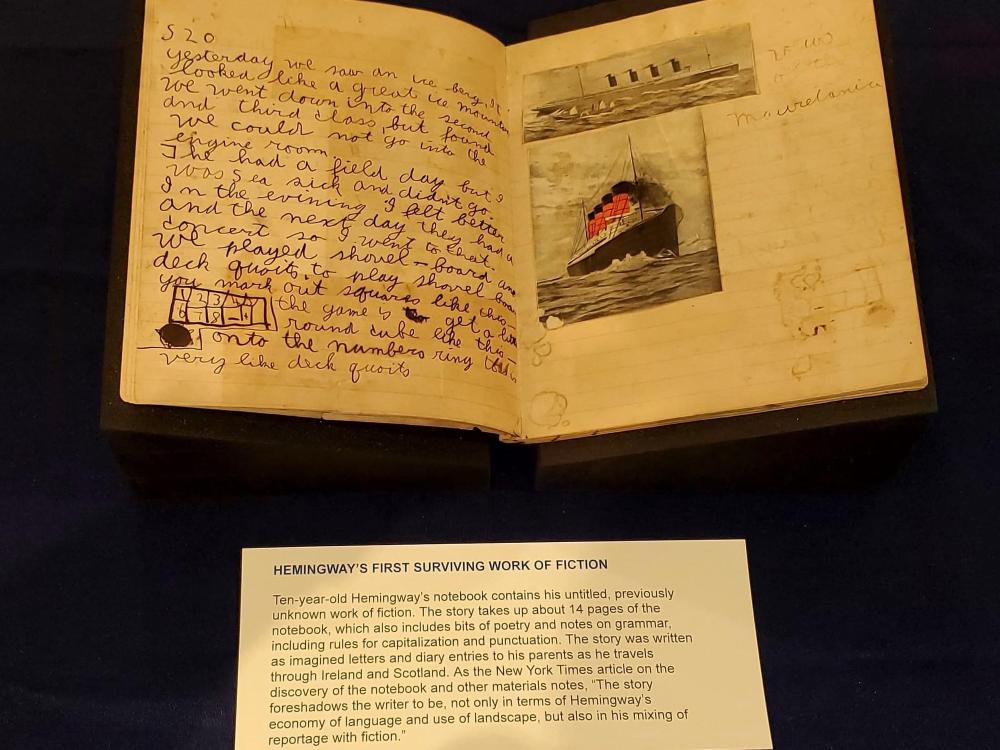 S 20
yesterday we saw an ice berg, it
looked like a great ice mountain
we went down into the second
and third class, but found
we could not go into the
engine room.
The had a field day but I
was sea sick and didnt go.
In the evining I felt better
and the next day they had a
concert so I went to that.
we played shovel-board and
deck quoits. to play shovel boar
you mark out squares like this-
1 2 3
6 7 8
the game is to get a litt
round cube like this-
onto the numbers ring
very like deck quoits
Mauretania
HEMINGWAY'S FIRST SURVIVING WORK OF FICTION
Ten-year-old Hemingway's notebook contains his untitled, previously
unknown work of fiction. The story takes up about 14 pages of the
notebook, which also includes bits of poetry and notes on grammar,
including rules for capitalization and punctuation. The story was written
as imagined letters and diary entries to his parents as he travels
through Ireland and Scotland. As the New York Times article on the
discovery of the notebook and other materials notes, "The story
foreshadows the writer to be, not only in terms of Hemingway's
economy of language and use of landscape, but also in his mixing of
reportage with fiction."